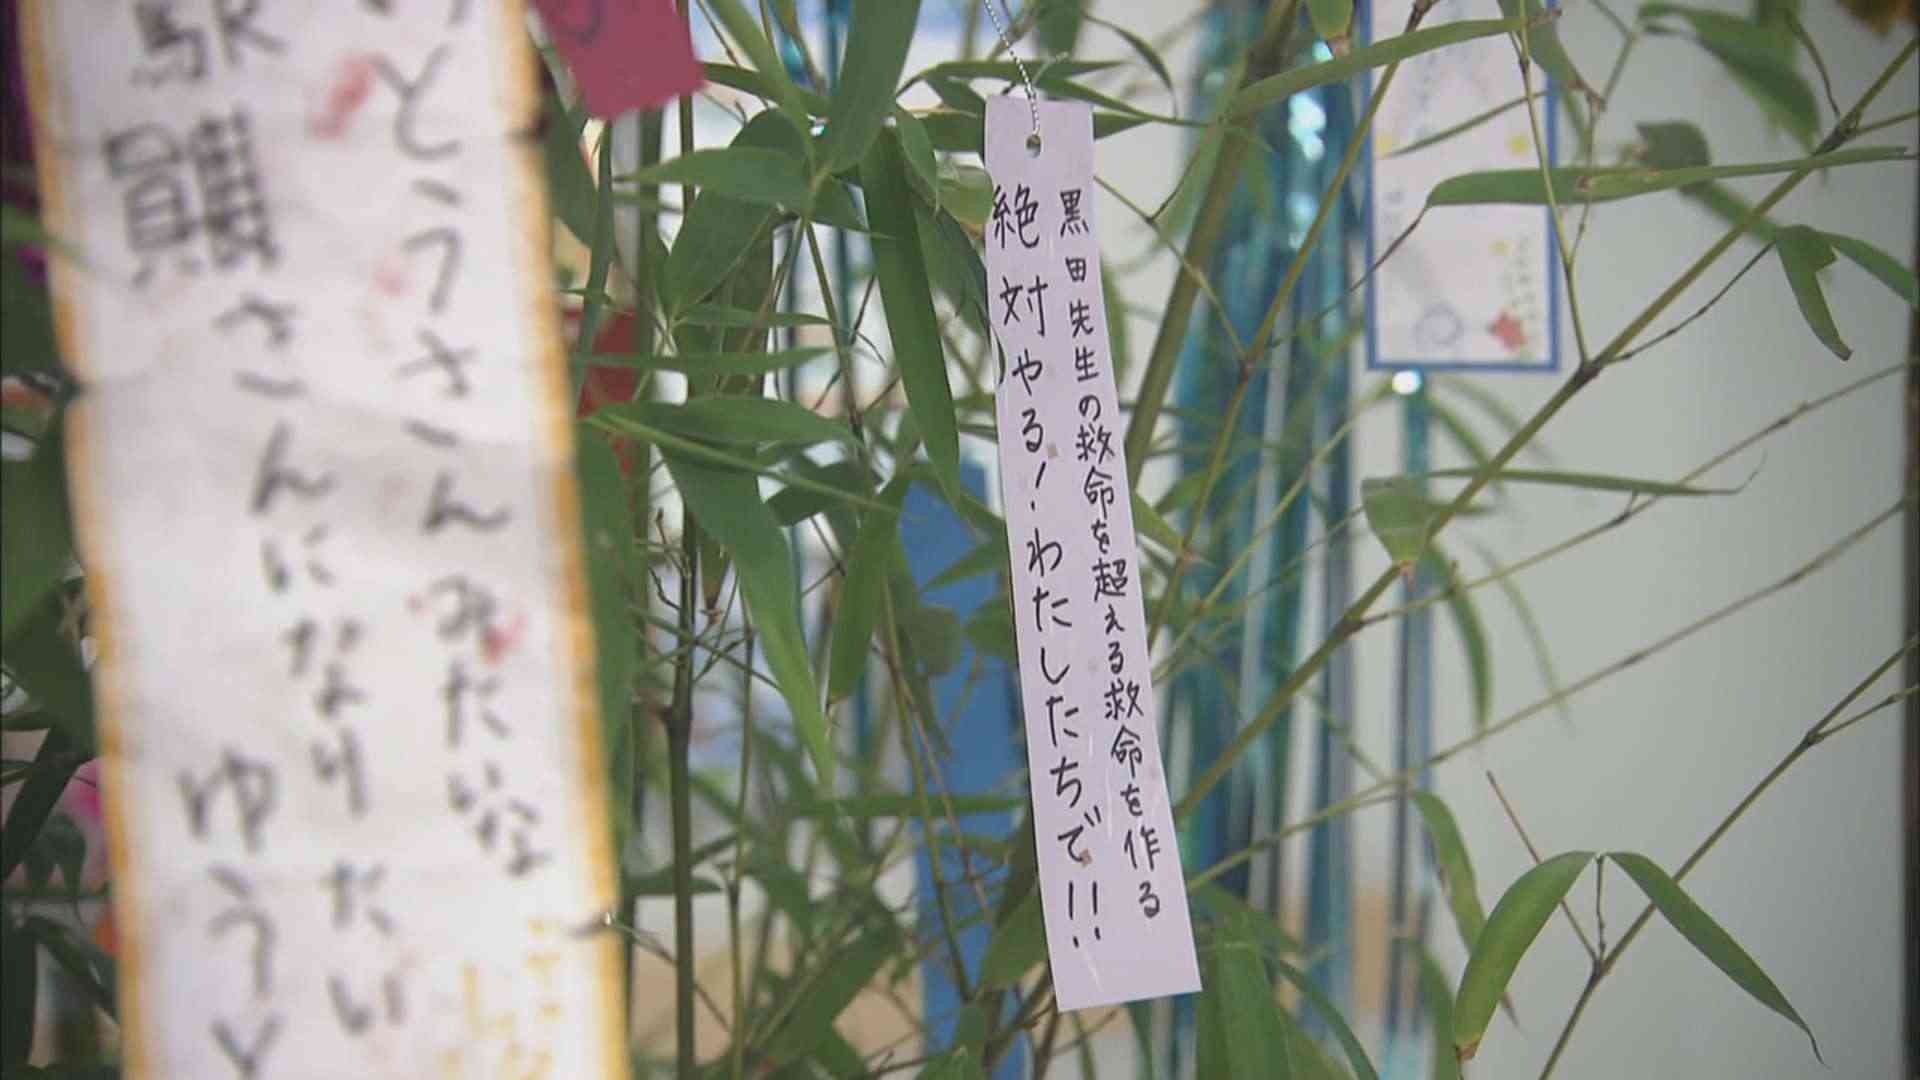 黒田先生の救命を超える救命を作る
絶対やる！わたしたちで！！
とうさんみたいな
駅員さんになりたい
ゆうと